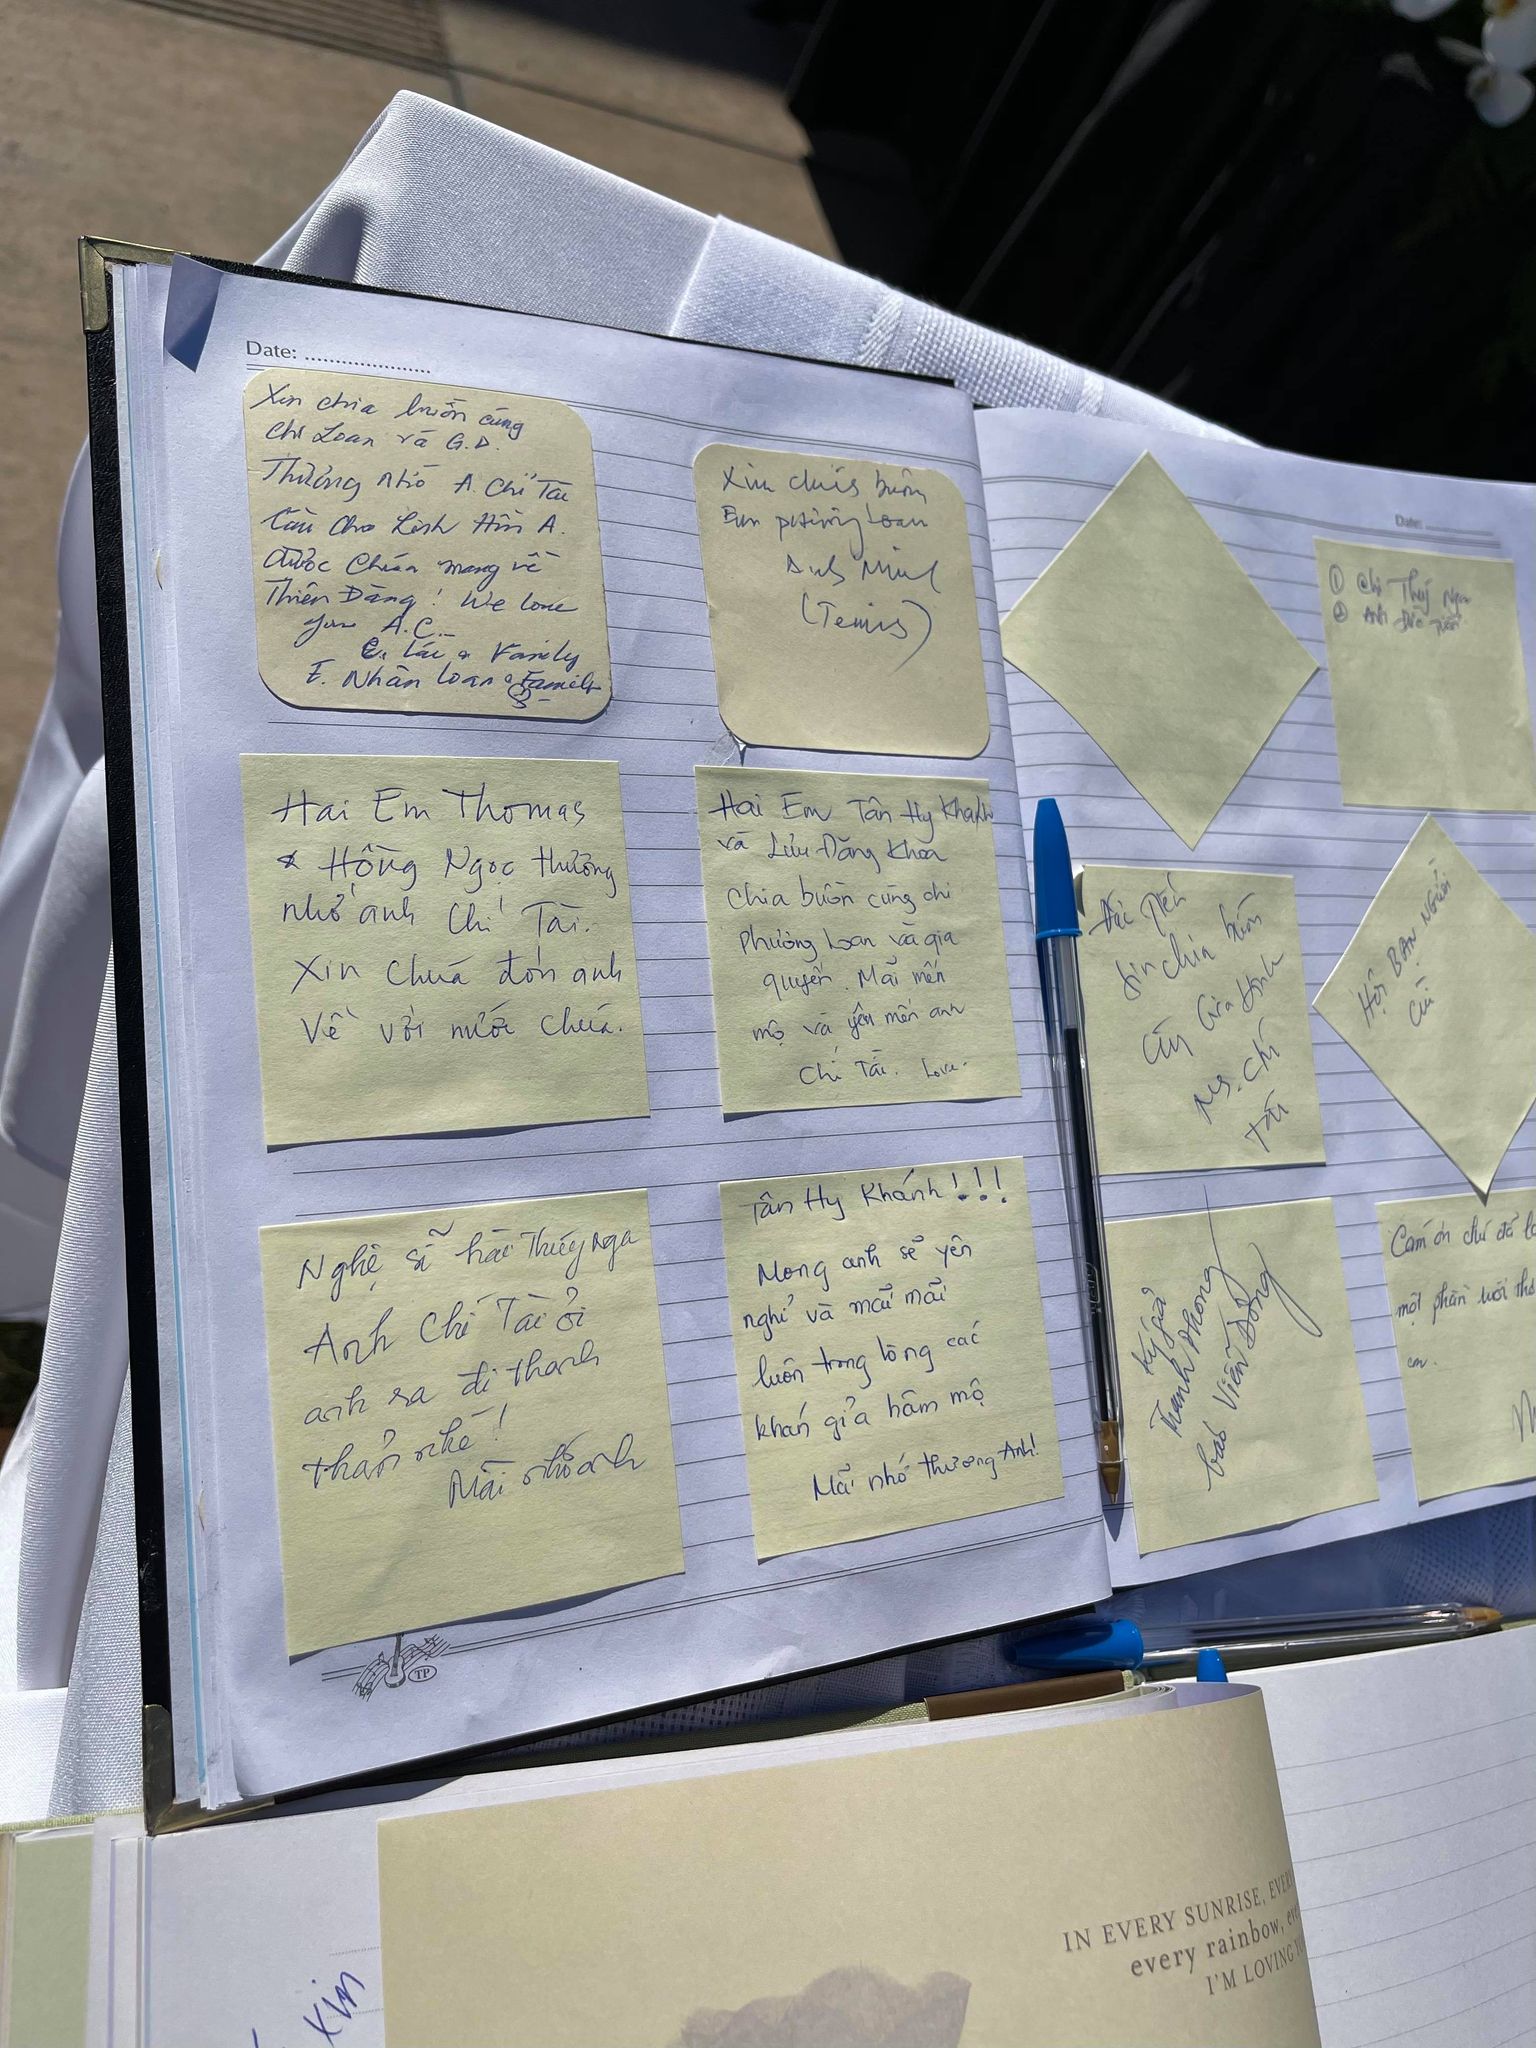 Date: .....................
Xin chia buồn cùng
chị Loan và G.D.
Thương nhớ A. Chí Tài
Cầu Cho Linh Hồn A.
được Chúa mang về
Thiên Đàng! We love
you A.C.
Family
E. Nhân Loan & Family
Xin chia buồn
Em phương Loan
Anh Minh
(Temis)
Hai Em Thomas
& Hồng Ngọc thương
nhớ anh Chí Tài.
Xin Chúa đón anh
về với nước Chúa.
Hai Em Tân Hy Khánh
và Lưu Đăng Khoa
chia buồn cùng chị
Phương Loan và gia
quyến. Mãi mến
mộ và yêu mến anh
Chí Tài. Love.
Nghệ sĩ hài Thúy Nga
Anh Chí Tài ơi
anh ra đi thanh
thản nhé!
Mãi nhớ anh
Tân Hy Khánh!!!
Mong anh sẽ yên
nghỉ và mãi mãi
luôn trong lòng các
khán giả hâm mộ
Mãi nhớ thương Anh!
Date:
① Chị Thúy Nga
② Anh Đức Tiến
xin chia buồn
cùng Gia đình
NS. Chí
Tài
HỘI BẠN NGƯỜI
CŨ
Ký giả
Thanh Phong
báo Viễn Đông
Cám ơn chú đã
một phần tuổi thơ
con.
TP
IN EVERY SUNRISE, EVERY
every rainbow,
I'M LOVING
Xin